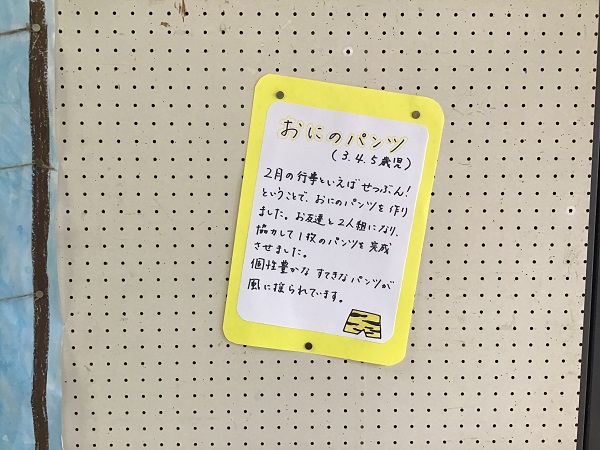 おにのパンツ
(3.4.5歳児)
2月の行事といえば せつぶん!
ということで、おにのパンツを作り
ました。お友達と2人組になり、
協力して1枚のパンツを完成
させました。
個性豊かな すてきなパンツが
風に揺られています。